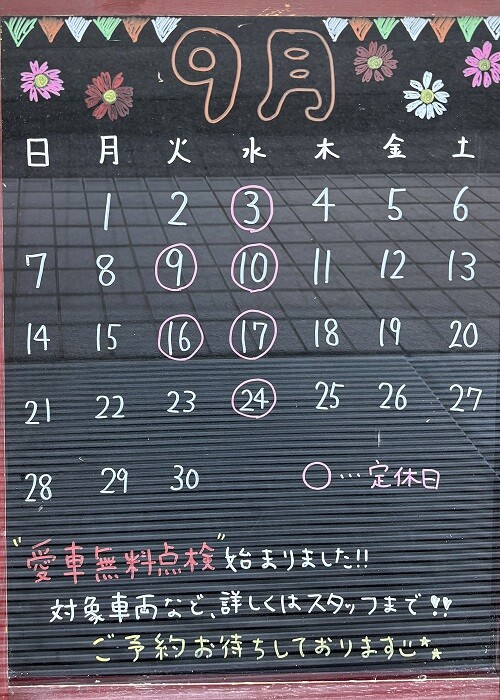 9月
日 月 火 水 木 金 土
1 2 3 4 5 6
7 8 9 10 11 12 13
14 15 16 17 18 19 20
21 22 23 24 25 26 27
28 29 30 ○…定休日
"愛車無料点検"始まりました!!
対象車両など、詳しくはスタッフまで!!
ご予約お待ちしております